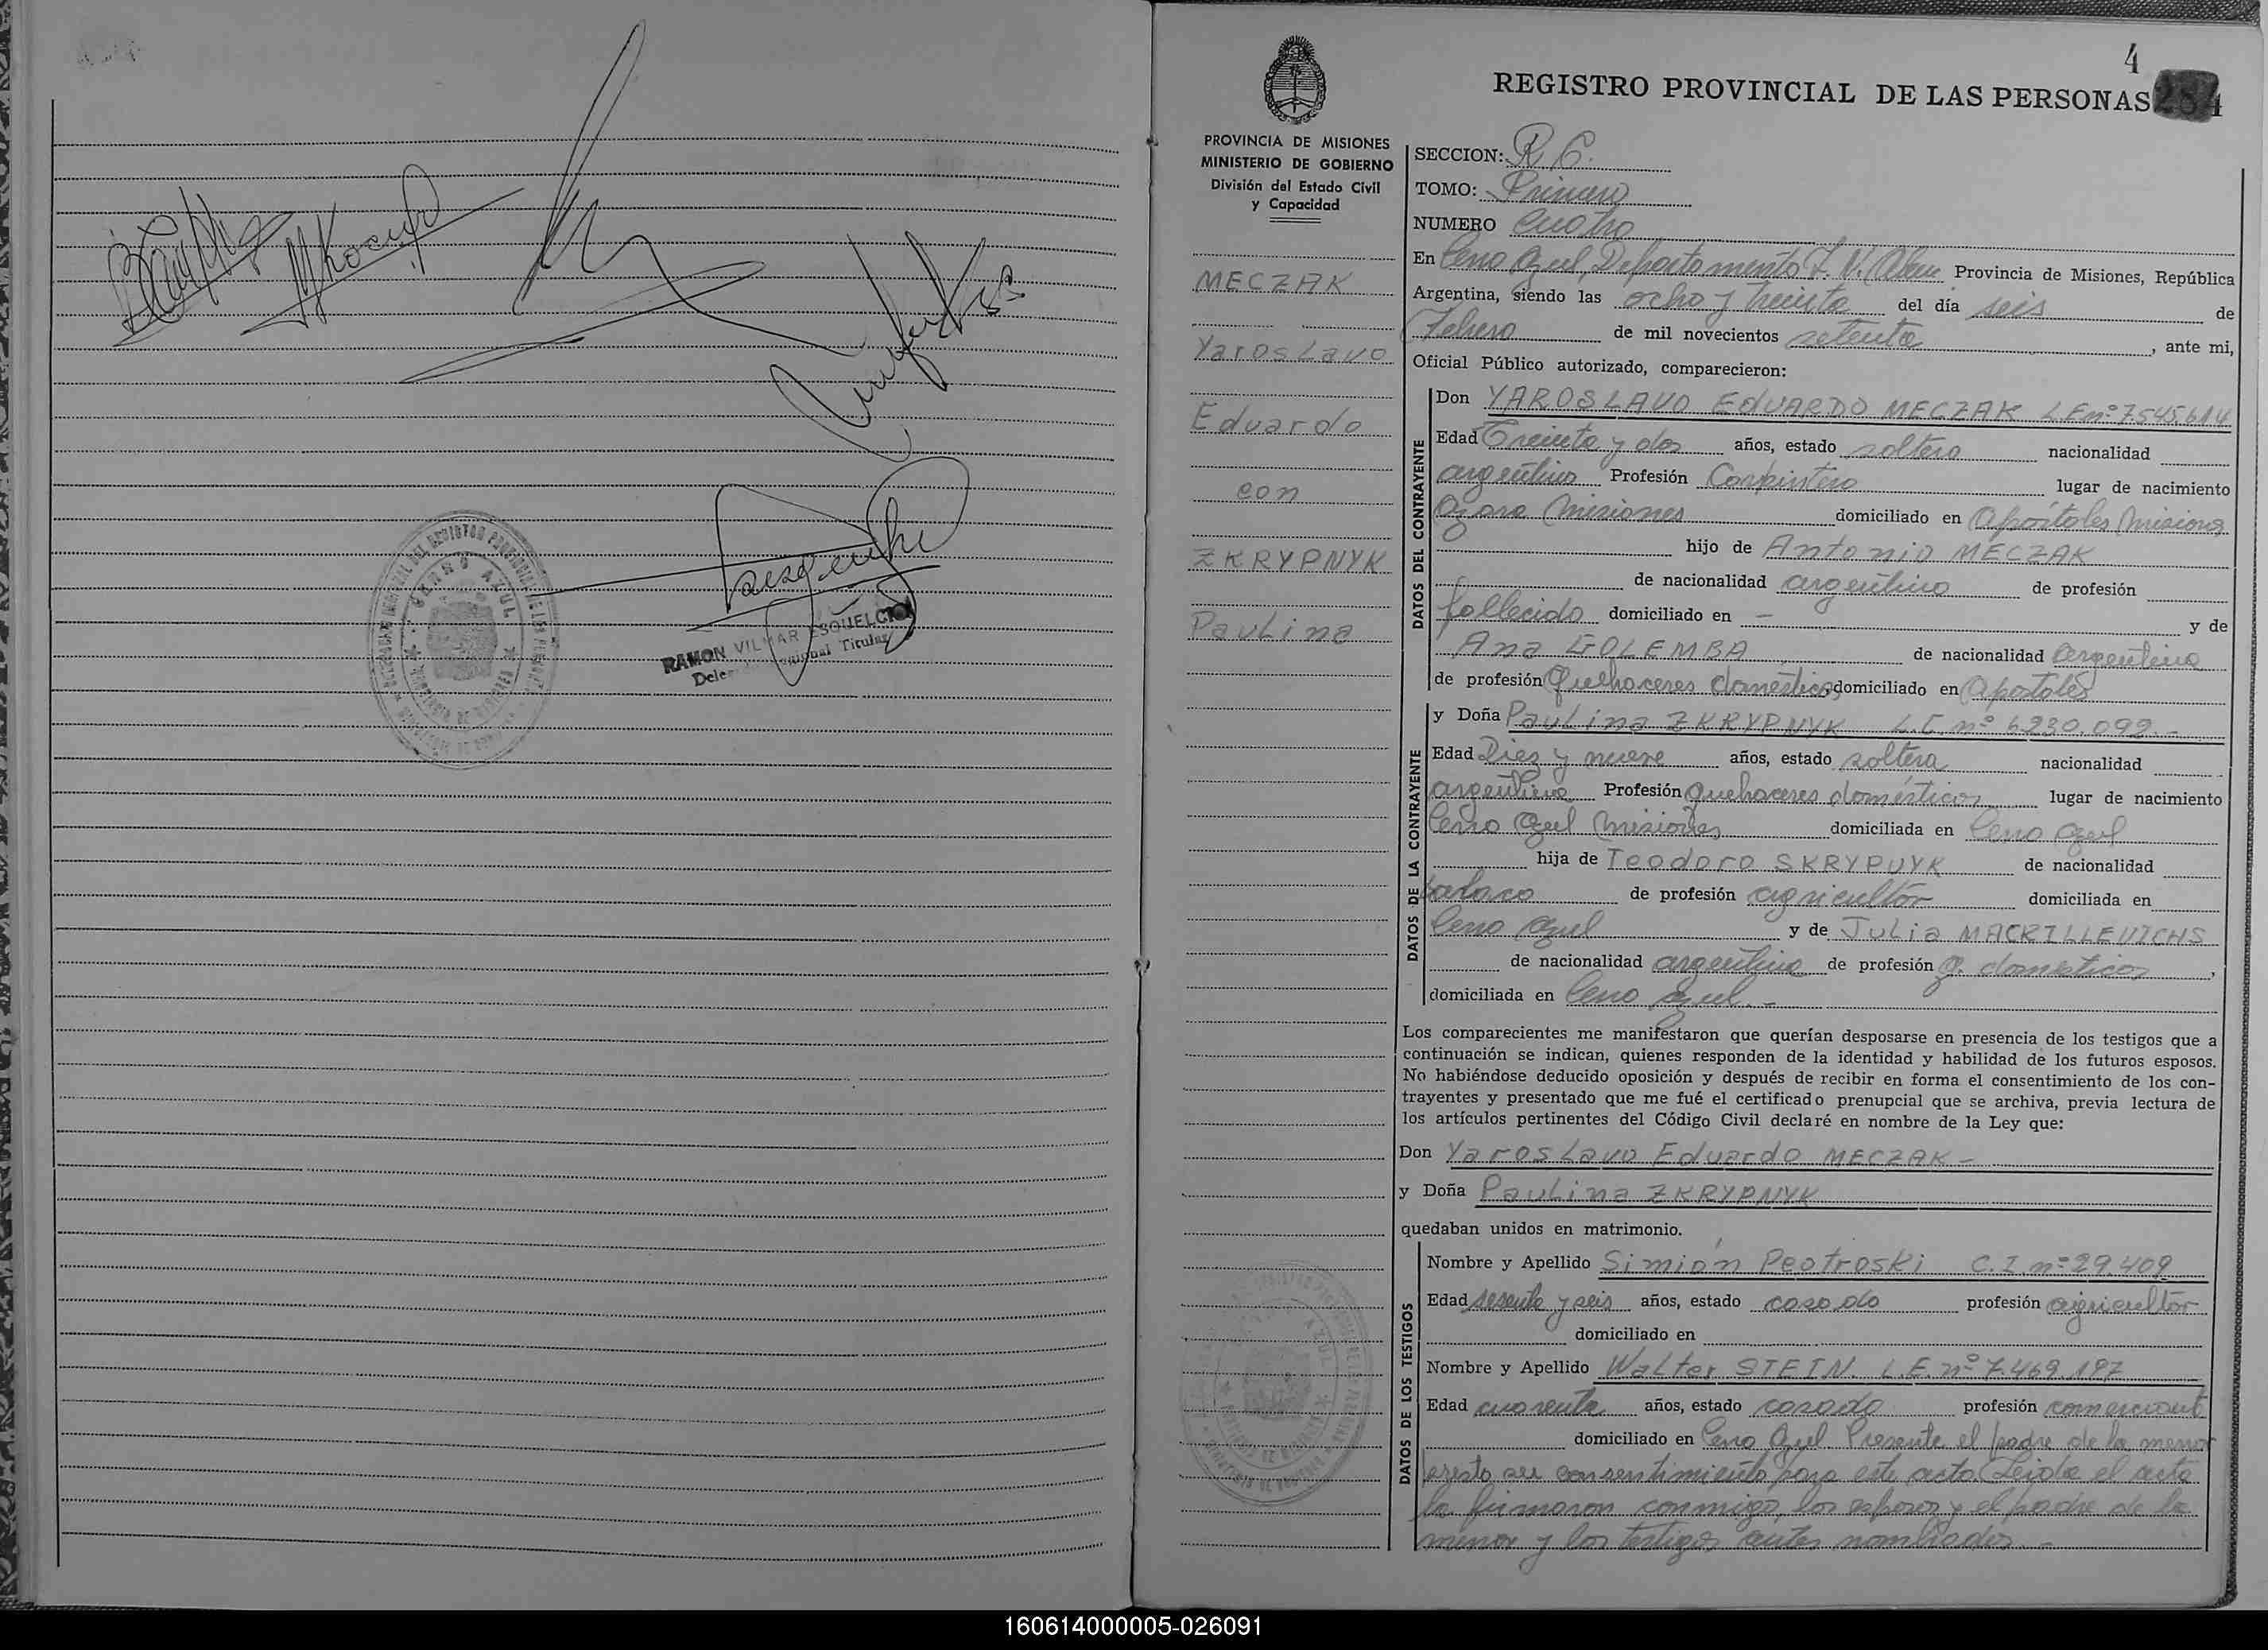 RAMON VILMAR ESQUELCIO
Titular
4
REGISTRO PROVINCIAL DE LAS PERSONAS
PROVINCIA DE MISIONES
MINISTERIO DE GOBIERNO
División del Estado Civil
y Capacidad
MECZAK
Yaroslavo
Eduardo
con
ZKRYPNYK
Paulina
SECCION: R C.
TOMO: Primero
NUMERO Cuatro
En Cerro Azul, Departamento L. N. Alem Provincia de Misiones, República
Argentina, siendo las ocho y treinta del día seis de
Febrero de mil novecientos setenta , ante mi,
Oficial Público autorizado, comparecieron:
DATOS DEL CONTRAYENTE
Don YAROSLAVO EDUARDO MECZAK L.E nº 7.545.614
Edad Treinta y dos años, estado soltero nacionalidad
argentino Profesión Carpintero lugar de nacimiento
Azara Misiones domiciliado en Apóstoles Misiones
hijo de Antonio MECZAK
de nacionalidad argentino de profesión
fallecido domiciliado en - y de
Ana GOLEMBA de nacionalidad argentina
de profesión Quehaceres domésticos domiciliado en Apóstoles
DATOS DE LA CONTRAYENTE
y Doña Paulina ZKRYPNYK L.C. nº 6.230.092.-
Edad Diez y nueve años, estado soltera nacionalidad
argentina Profesión quehaceres domésticos lugar de nacimiento
Cerro Azul Misiones domiciliada en Cerro Azul
hija de Teodoro SKRYPUYK de nacionalidad
polaco de profesión agricultor domiciliada en
Cerro Azul y de Julia MACRILLEVICHS
de nacionalidad argentina de profesión Q. domésticos ,
domiciliada en Cerro Azul.-
Los comparecientes me manifestaron que querían desposarse en presencia de los testigos que a
continuación se indican, quienes responden de la identidad y habilidad de los futuros esposos.
No habiéndose deducido oposición y después de recibir en forma el consentimiento de los con-
trayentes y presentado que me fué el certificado prenupcial que se archiva, previa lectura de
los artículos pertinentes del Código Civil declaré en nombre de la Ley que:
Don Yaroslavo Eduardo MECZAK -
y Doña Paulina ZKRYPNYK
quedaban unidos en matrimonio.
DATOS DE LOS TESTIGOS
Nombre y Apellido Simión Peotroski C.I. nº 29.409
Edad sesenta y seis años, estado casado profesión agricultor
domiciliado en
Nombre y Apellido Walter STEIN. L.E. nº 7.469.197
Edad cuarenta años, estado casado profesión comerciant
domiciliado en Cerro Azul. Presente el padre de la menor
presta su consentimiento para este acto. Leída el acta
la firmaron conmigo, los esposos y el padre de la
menor y los testigos antes nombrados. -
160614000005-026091